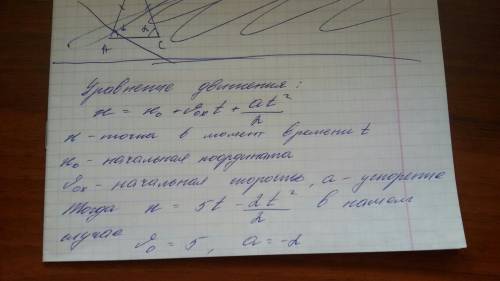 A α α C
Уравнение движения:
x = x₀ + v₀ₓt + at²/2
x - точка в момент времени t
x₀ - начальная координата
v₀ₓ - начальная скорость, a - ускорение
Тогда x = 5t - 2t²/2 в нашем
случае v₀ = 5, a = -2